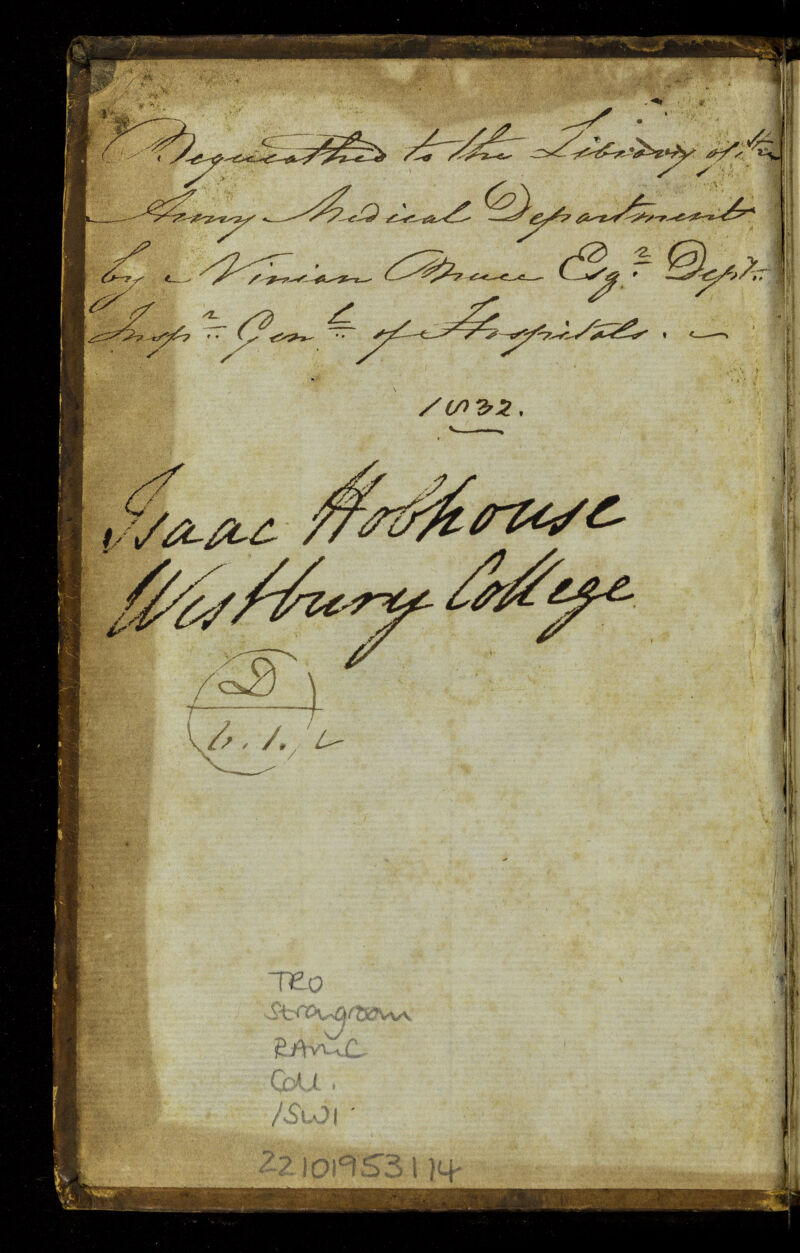 Bequeathed to the Library of the
Army Medical Department
by Ninian Bruce Esqr. Depy.
Inspr. Genl. of Hospitals.
1832.
Isaac Hobhouse
Westbury College
D
6.1.
TRO
Strongroom
RAMC
Coll.
/SWI
22101953114